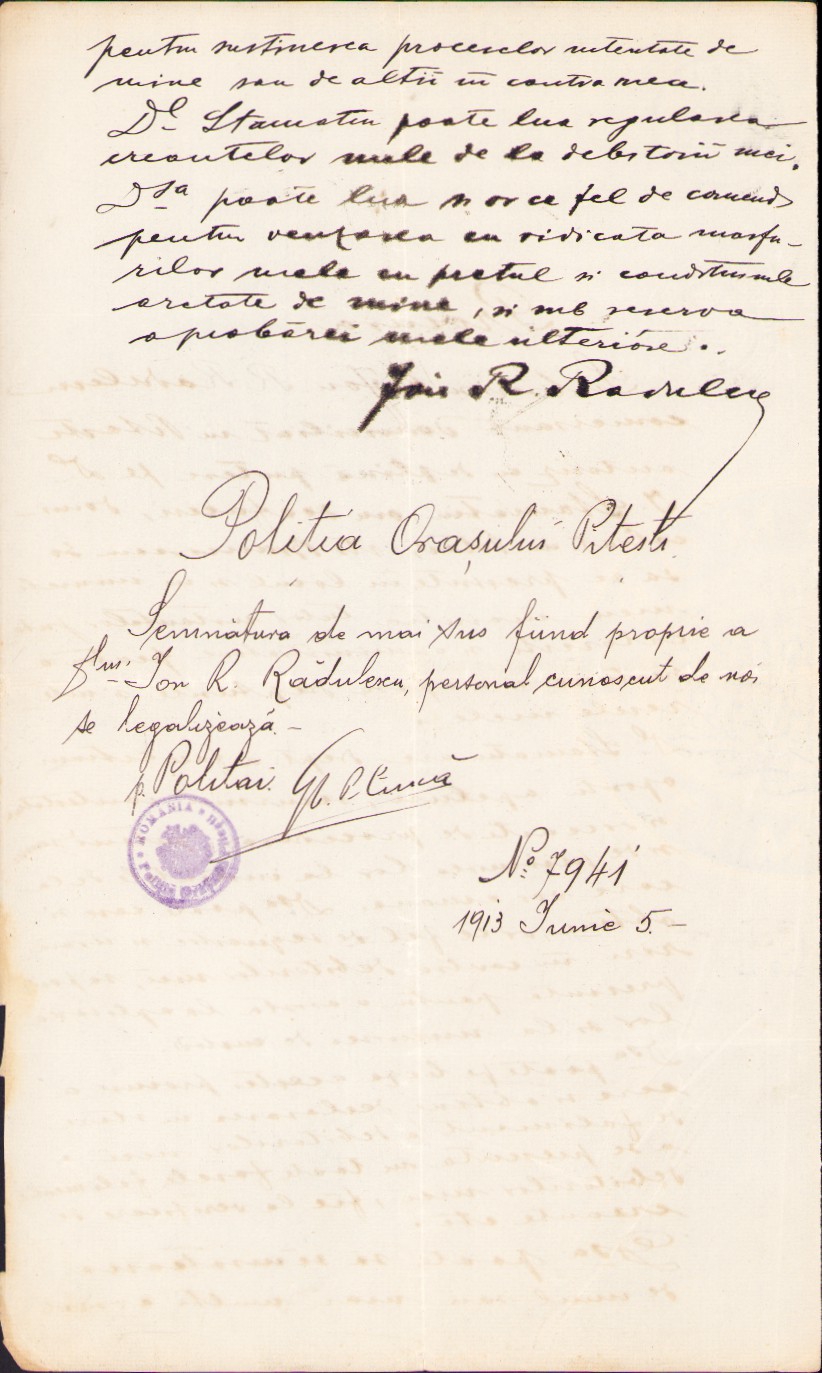 pentru sustinerea proceselor intentate de
mine sau de altii in contra mea.
Dl Stamatiu poate lua regularea
creantelor mele de la debitorii mei.
Dsa poate lua si or ce fel de comend
pentru venzarea cu ridicata marfu-
rilor mele cu pretul si conditiunile
aretate de mine, si sub reserva
aprobărei mele ulterióre.
Ion R. Radulescu
Politia Orașului Pitesti
Semnătura de mai sus fiind proprie a
Ion R. Rădulescu, personal cunoscut de noi
se legalizează.-
p. Politai.
ROMANIA
No 7941
1913 Iunie 5.-